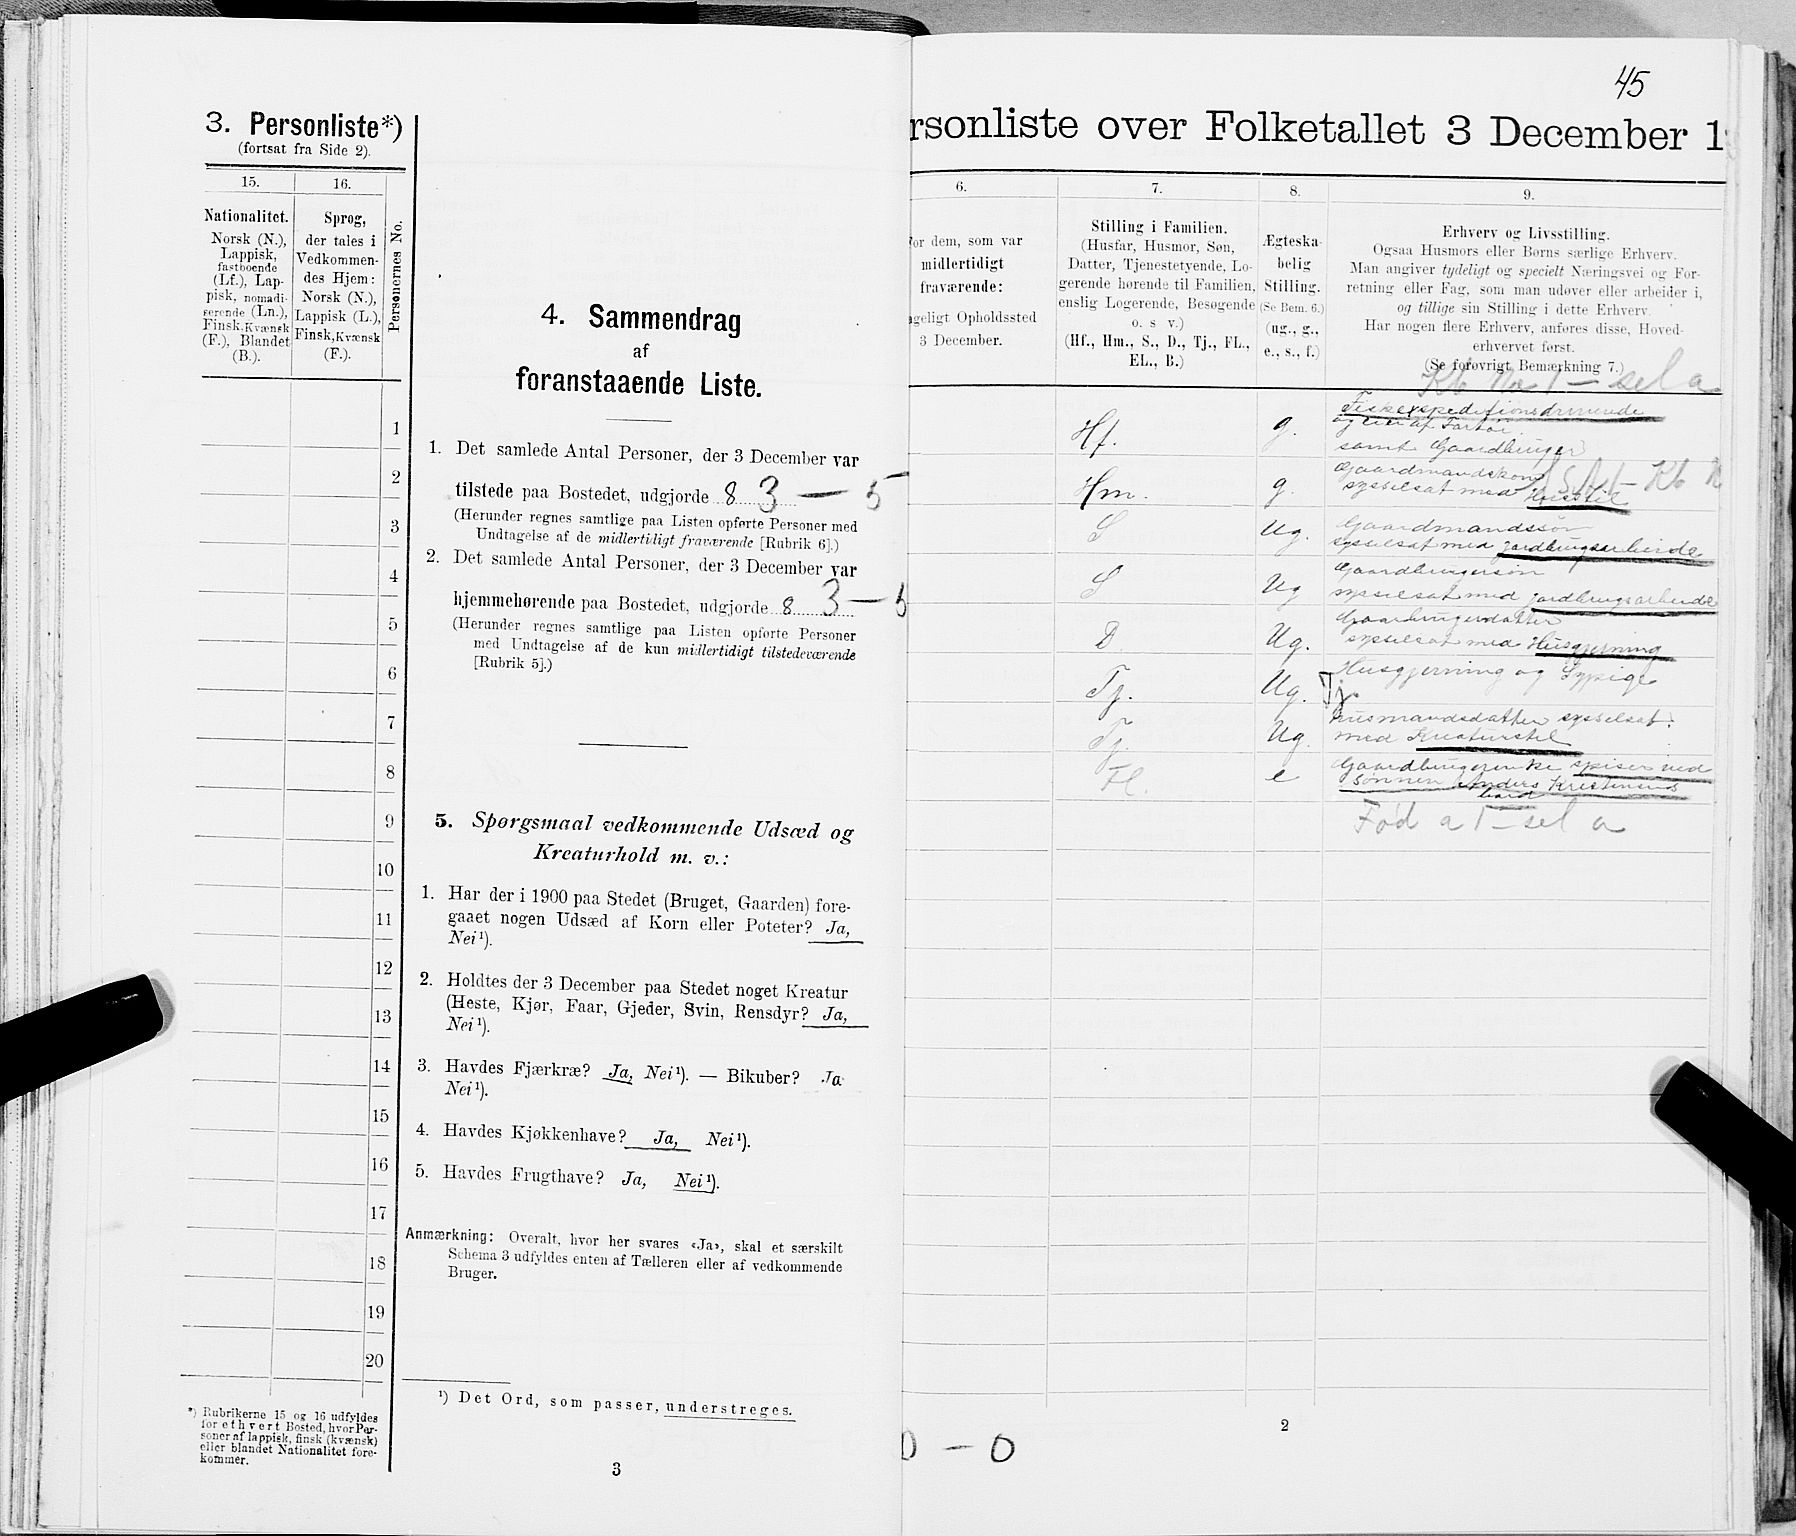 3. Personliste*)
(fortsat fra Side 2).
15. 16.
Nationalitet.
Norsk (N.),
Lappisk,
fastboende
(Lf.), Lap-
pisk, nomadi-
serende (Ln.),
Finsk, Kvænsk
(F.), Blandet
(B.).
Sprog,
der tales i
Vedkommen-
des Hjem:
Norsk (N.),
Lappisk (L.),
Finsk, Kvænsk
(F.).
Personernes No.
1
2
3
4
5
6
7
8
9
10
11
12
13
14
15
16
17
18
19
20
*) Rubrikerne 15 og 16 udfyldes
for ethvert Bosted, hvor Per-
soner af lappisk, finsk (kvænsk)
eller blandet Nationalitet fore-
kommer.
4. Sammendrag
af
foranstaaende Liste.
1. Det samlede Antal Personer, der 3 December var
tilstede paa Bostedet, udgjorde 8 3 — 5
(Herunder regnes samtlige paa Listen opførte Personer med
Undtagelse af de midlertidigt fraværende [Rubrik 6].)
2. Det samlede Antal Personer, der 3 December var
hjemmehørende paa Bostedet, udgjorde 8 3 — 5
(Herunder regnes samtlige paa Listen opførte Personer
med Undtagelse af de kun midlertidigt tilstedeværende
[Rubrik 5].)
5. Spørgsmaal vedkommende Udsæd og
Kreaturhold m. v.:
1. Har der i 1900 paa Stedet (Bruget, Gaarden) fore-
gaaet nogen Udsæd af Korn eller Poteter? Ja,
Nei¹).
2. Holdtes der 3 December paa Stedet noget Kreatur
(Heste, Kjør, Faar, Gjeder, Svin, Rensdyr? Ja,
Nei¹).
3. Havdes Fjærkræ? Ja, Nei¹). — Bikuber? Ja
Nei¹).
4. Havdes Kjøkkenhave? Ja, Nei¹).
5. Havdes Frugthave? Ja, Nei¹).
Anmærkning: Overalt, hvor her svares «Ja», skal et særskilt
Schema 3 udfyldes enten af Tælleren eller af vedkommende
Bruger.
¹) Det Ord, som passer, understreges.
3
45
rsonliste over Folketallet 3 December 1
6. 7. 8. 9.
or dem, som var
midlertidigt
fraværende:
geligt Opholdssted
3 December.
Stilling i Familien.
(Husfar, Husmor, Søn,
Datter, Tjenestetyende, Lo-
gerende hørende til Familien,
enslig Logerende, Besøgende
o. s v.)
(Hf., Hm., S., D., Tj., FL.,
EL., B.)
Ægteska-
belig
Stilling.
(Se Bem. 6.)
(ug., g.,
e., s., f.)
Erhverv og Livsstilling.
Ogsaa Husmors eller Børns særlige Erhverv.
Man angiver tydeligt og specielt Næringsvei og For-
retning eller Fag, som man udøver eller arbeider i,
og tillige sin Stilling i dette Erhverv.
Har nogen flere Erhverv, anføres disse, Hoved-
erhvervet først.
(Se forøvrigt Bemærkning 7.)
1 — sel a
Fiskexpeditionsdrivende
og eier af Fartøi
Hf. g. samt Gaardbruger
Gaardmandskone
Hm. g. sysselsat med Husstel
Gaardmandssøn
S Ug. sysselsat med jordbrugsarbeide
Gaardbrugersøn
S Ug sysselsat med jordbrugsarbeide
Gaardbrugerdatter
D Ug. sysselsat med Husgjerning
Tj. Ug. Tj. Husgjerning og Sypige
Husmandsdatter sysselsat
Tj. Ug. med Kreaturstel
Fl. e Gaardbrugerenke spiser ved
Sønnen Anders Kristensens
bord
Fød a 1 — sel a
2
0 — 0